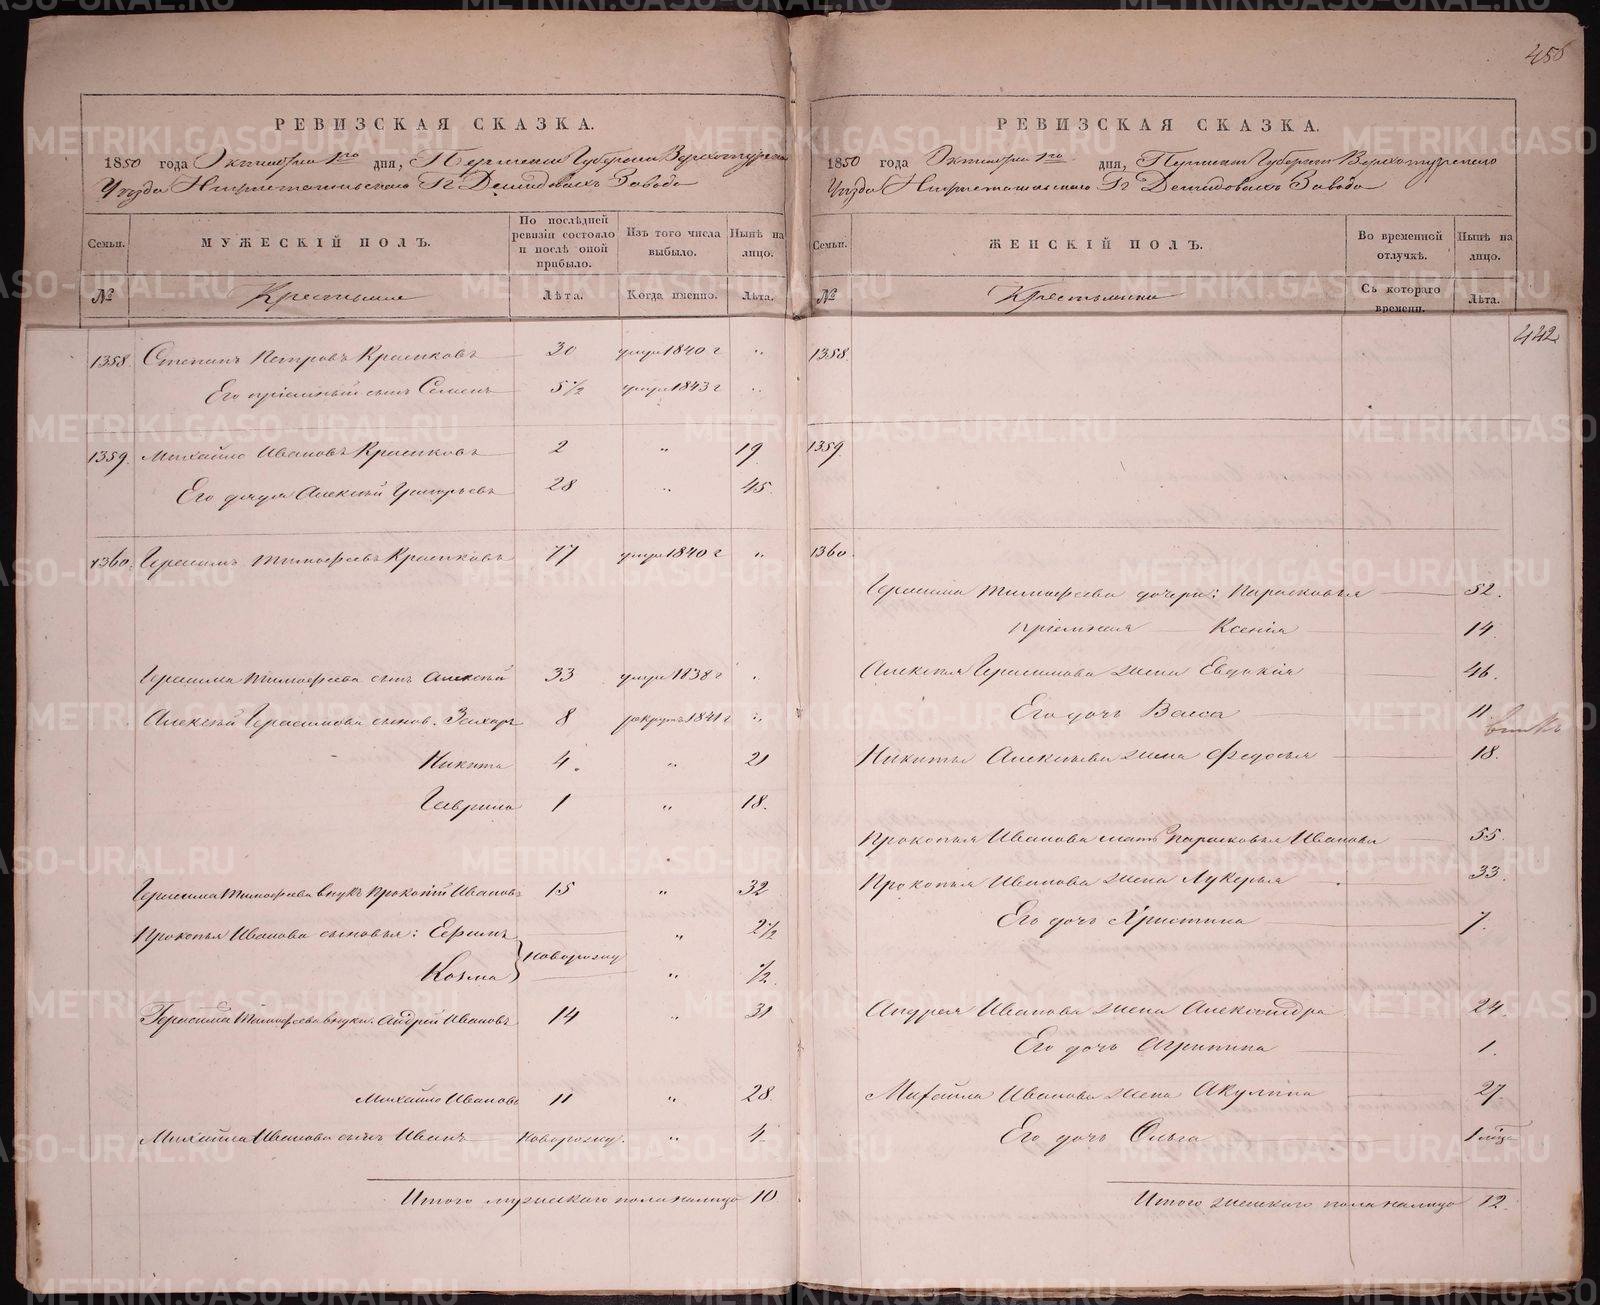 456
РЕВИЗСКАЯ СКАЗКА.
1850 года Октября 1го дня, Пермской Губернии Верхотурскаго
Уѣзда Нижнетагильскаго Гг Демидовыхъ Завода
Семьи.
МУЖЕСКІЙ ПОЛЪ.
По послѣдней ревизіи состояло и послѣ оной прибыло.
Изъ того числа выбыло.
Нынѣ на лицо.
№
Крестьяне
Лѣта.
Когда именно.
Лѣта.
1358. Степанъ Петровъ 30 умре 1840 г "
Его пріемный сынъ Семенъ 5 1/2 умре 1843 г "
1359. Михайло Ивановъ 2 " 19
Его дядя Алексѣй Григорьевъ 28 " 45.
1360. Герасимъ Тимофеевъ 77 умре 1840 г "
Герасима Тимофеева сынъ Алексѣй 33 умре 1838 г "
Алексѣя Герасимова сынов. Захаръ 8 рекрутъ 1841 г "
Никита 4. " 21
Гаврила 1 " 18.
Герасима Тимофеева внукъ Прокопій Ивановъ 15 " 32
Прокопья Иванова сыновья: Ефимъ " 2 1/2
новорожд
Козма " 1/2
Герасима Тимофеева внуки. Андрей Ивановъ 14 " 31
Михайло Ивановъ 11 " 28.
Михайла Иванова сынъ Иванъ новорожд. " 4
Итого мужескаго пола налицо 10
РЕВИЗСКАЯ СКАЗКА.
1850 года Октября 1го дня, Пермской Губерніи Верхотурскаго
Уѣзда Нижнетагильскаго Гг Демидовыхъ Завода
Семьи.
ЖЕНСКІЙ ПОЛЪ.
Во временной отлучкѣ.
Нынѣ на лицо.
№
Крестьянки
Съ котораго времени.
Лѣта.
442
1358.
1359.
1360.
Герасима Тимофеева дочери: Парасковья 52.
пріемная Ксенія 14.
Алексѣя Герасимова жена Евдокія 46.
Его дочь Васса 11
Никиты Алексѣева жена Федосья 18.
Прокопья Иванова мать Парасковья Иванова 55.
Прокопья Иванова жена Лукерья 33.
Его дочь Христина 7.
Андрея Иванова жена Александра 24.
Его дочь Агрипина 1.
Михайла Иванова жена Акулина 27.
Его дочь Ольга 1 мѣся
Итого женскаго пола налицо 12.
METRIKI.GASO-URAL.RU